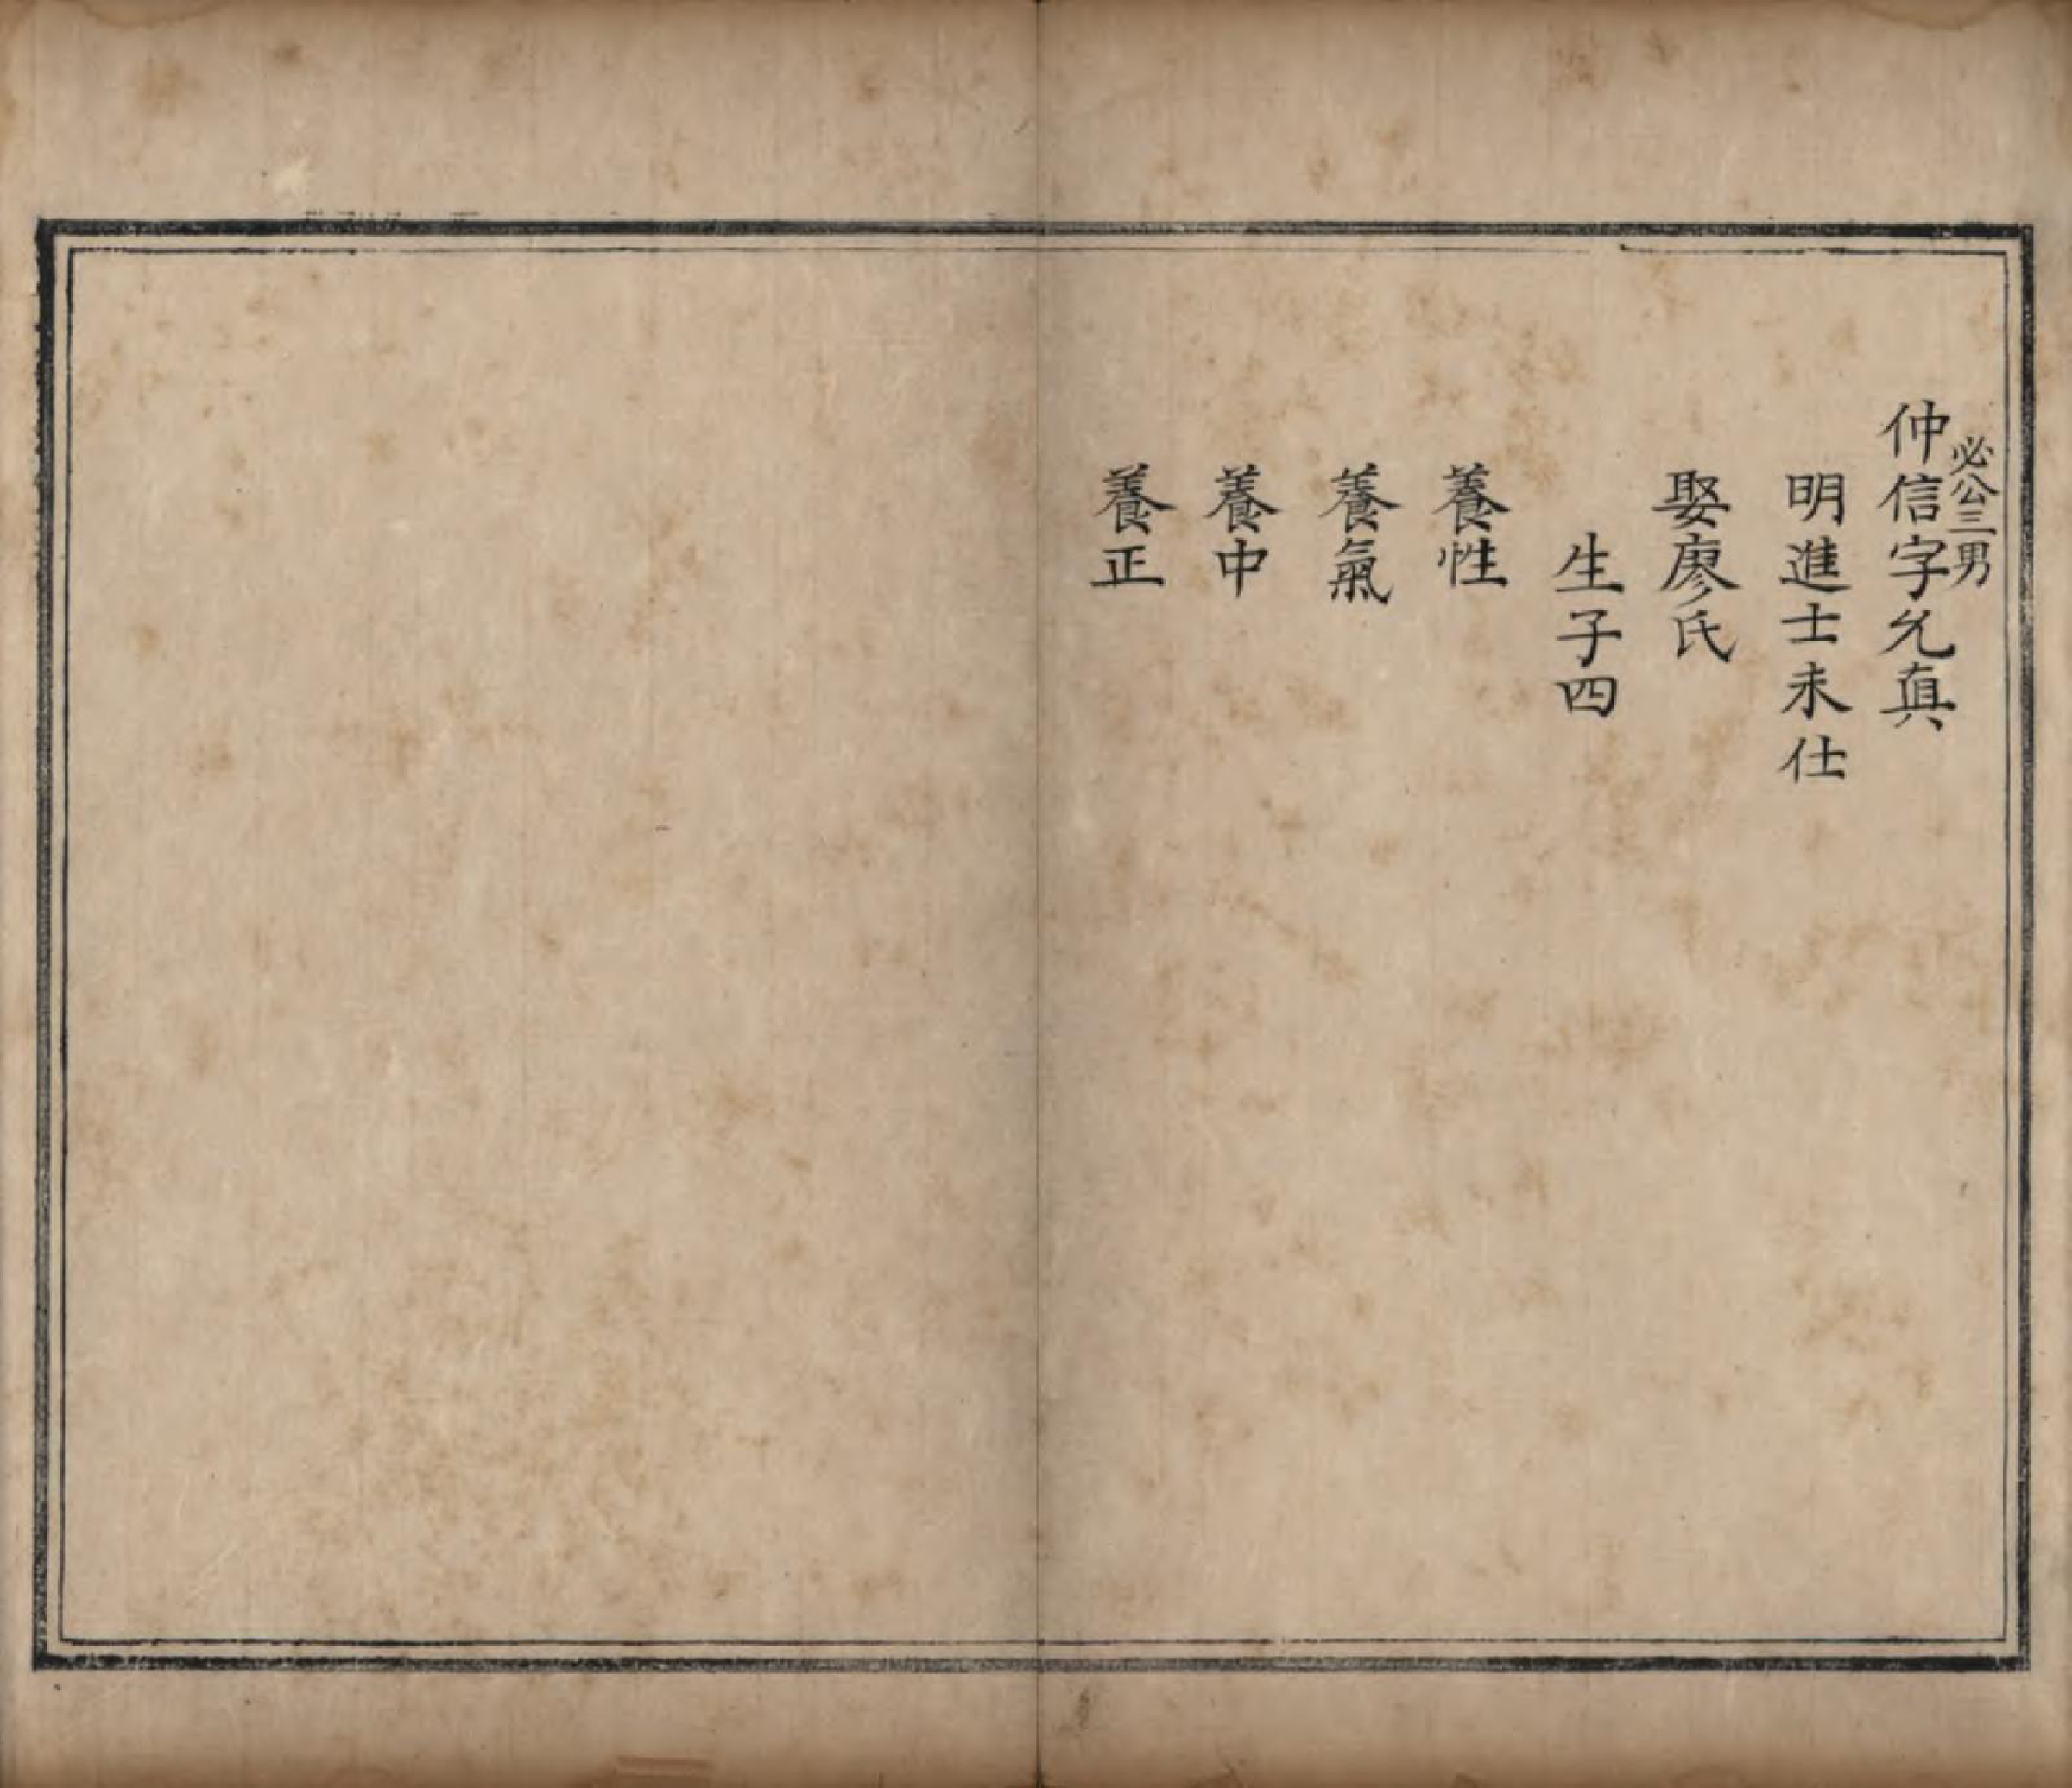 必公三男
仲信字允真
明進士未仕
娶廖氏
生子四
養性
養氣
養中
養正